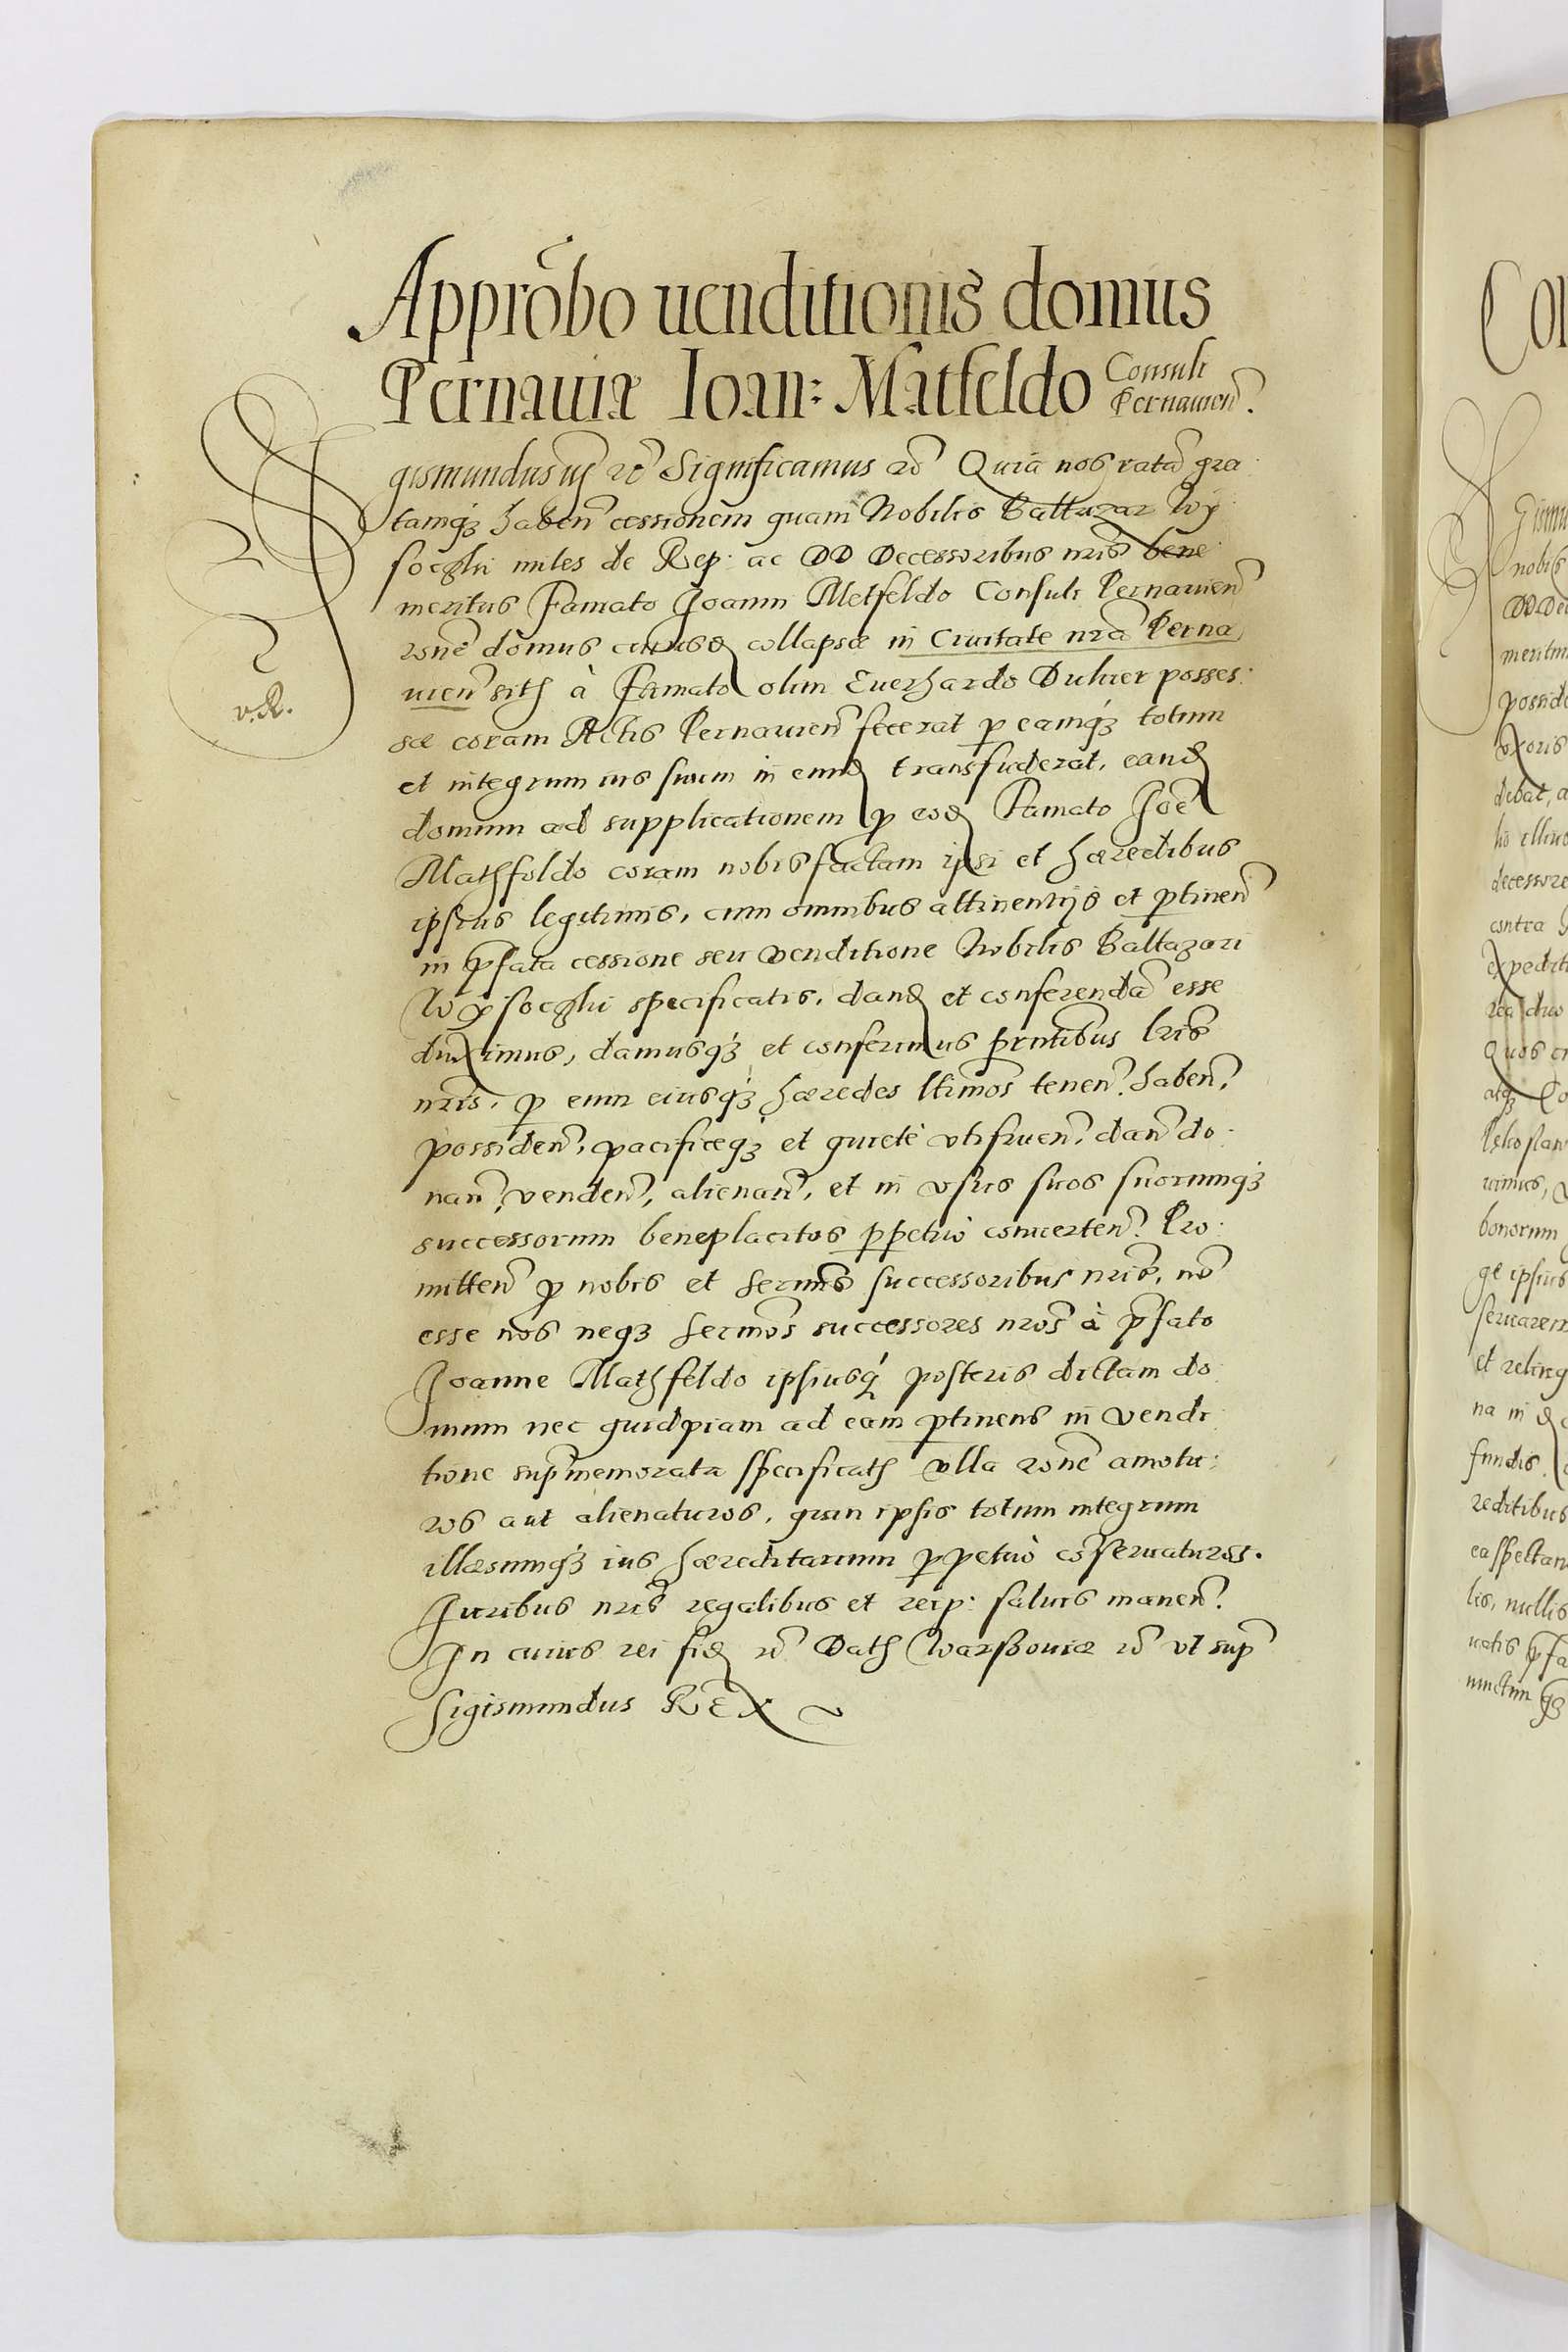 Appro͂bo uenditionis domus
Pernauiæ Ioan: Matfeldo Consuli
Pernauien̄.
Sigismundus iij rc̄ Significamus rc̄ Quia nos ratā gra
tamqꝫ haben̄ cessionem quam Nobilis Baltazar Wÿ
soczki miles de Rep: ac DD Decessoribus nr̄is bene
meritus Famato Joanni Metfeldo Consuli Pernauien̄
ro̅ne domus cuiusd collapsæ in Ciuitate nrā Perna
uien̄ sitæ à Famato olim Euerhardo Duluer posses
sæ coram Actis Pernauien̄ fecerat ꝑ eamqꝫ totum
et integrum ius suum in eund transfuderat, eand
domum ad supplicationem ꝑ eod Famato Joē
Mathfoldo coram nobis factam ipsi et hæredibus
ipsius legitimis, cum omnibus attinentijs et ꝑtinen̄
in p̄fata cessione seu venditione Nobilis Baltazari
Wÿsoczki specificatis, dand et conferendā esse
duximus, damusqꝫ et conferimus pr̄ntibus lr̄is
nr̄is, ꝑ eum eiusqꝫ hæredes ltīmos tenen̄, haben̄,
possiden̄, pacificeqꝫ et quietè vtifruen̄, dan̄ do
nan̄, venden̄, alienan̄, et in vsus suos suorumqꝫ
successorum beneplacitos ꝑpetuò conuerten̄. Pro
mitten̄ ꝓ nobis et Serm̄is successoribus nr̄is, nō
esse nos neqꝫ Serm̄os successores nr̄os à p̄fato
Joanne Mathfeldo ipsiusqꝫ posteris dictam do
mum nec quidpiam ad eam ꝑtinens in vendi
tione sup̄memorata specificatū vlla ro̅ne amotu
ros aut alienaturos, quin ipsis totum integrum
illæsumqꝫ ius hæreditarium ꝑpetuò cōseruaturos.
Juribus nr̄is regalibus et reip: saluis manen̄.
In cuius rei fid rc̄ Datū Warszouiæ rc̄ vt sup̄
Sigismundus REX
v.R.